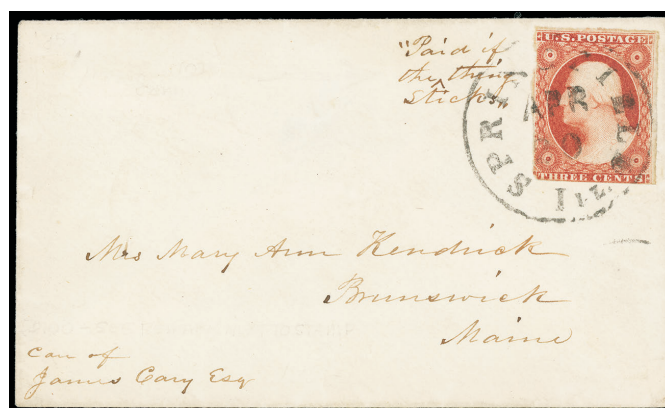 "Paid if
the thing
sticks"
U.S. POSTAGE
THREE CENTS
APR
Mrs Mary Ann Kendrick
Brunswick
Maine
care of
James Cary Esq